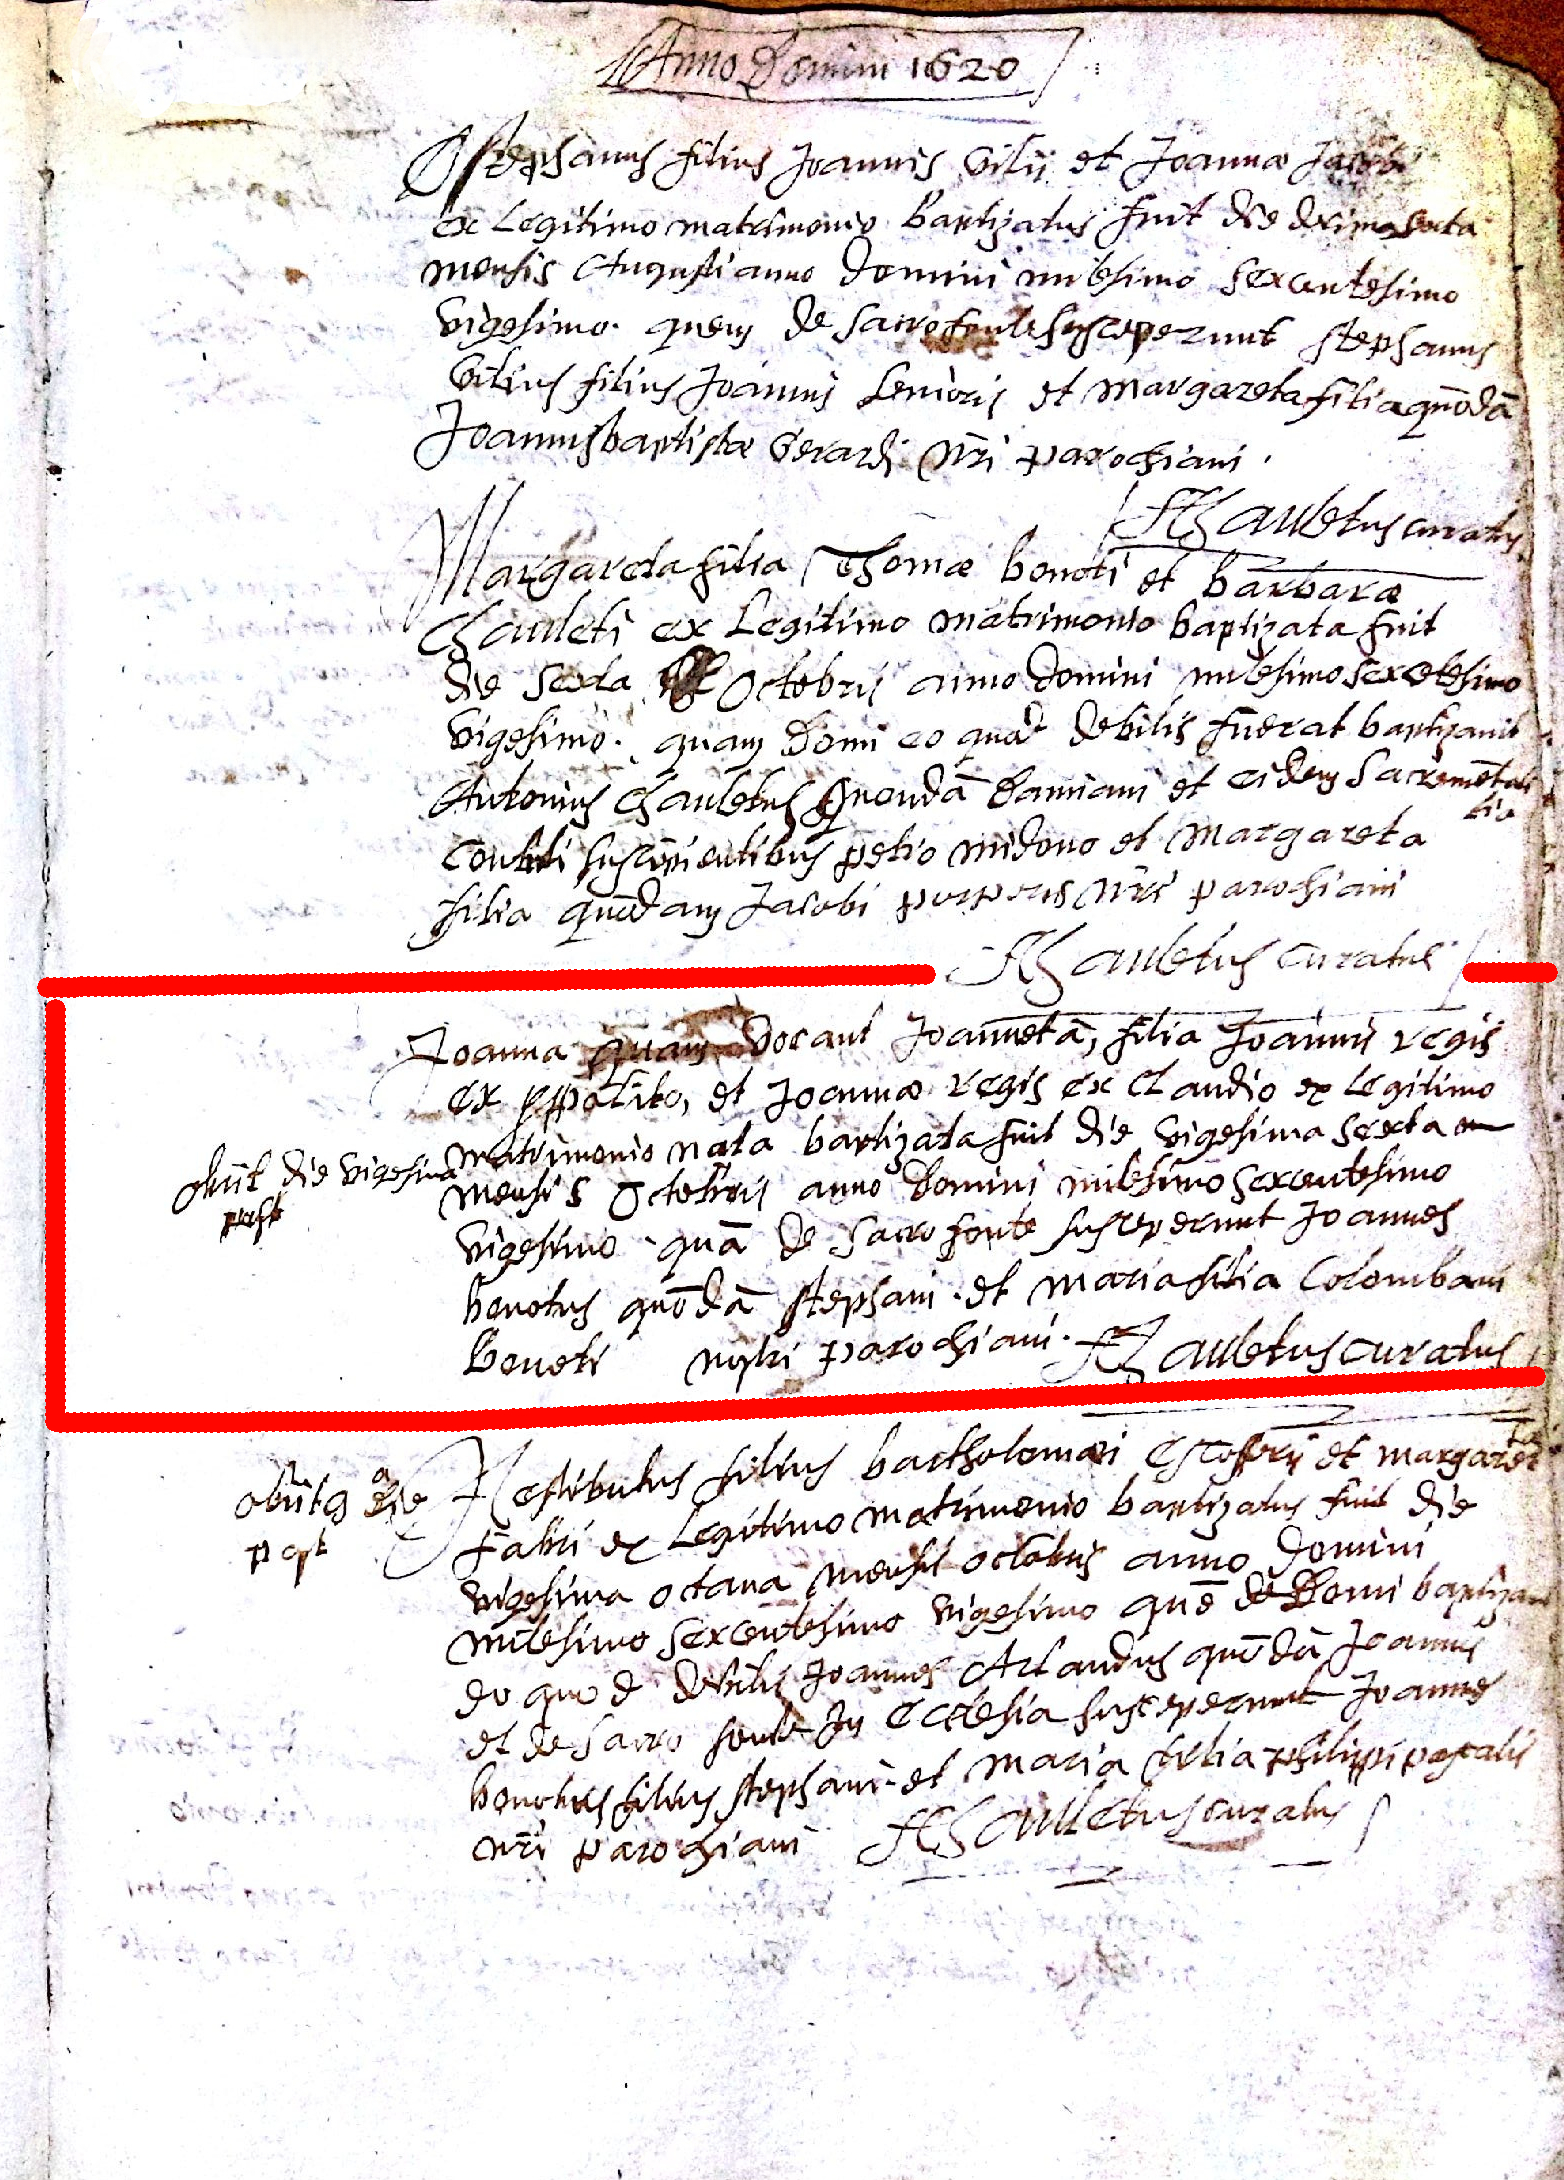 Anno Domini 1620
Stephanus filius Joannis Vitii et Joannæ Jacobi
ex Legitimo matrimonio baptizatus fuit die decima sexta
mensis Augusti anno Domini milesimo sexcentesimo
vigesimo. quem de sacro fonte susceperunt stephanus
Vitius filius Joannis senioris et Margareta filia quōdā
Joannisbaptistæ Gerardi nr̄i parochiani.
Chauletus curatus
Margareta filia Thomæ bonoti et barbaræ
Chauleti ex Legitimo matrimonio baptizata fuit
die sexta Octobris anno Domini milesimo sexcētesimo
vigesimo. quam Domi eo quod debilis fuerat baptizavit
Antonius Chauletus quondā Damiani et eidem Sacramētali
suscipientibus petro midono et Margareta
filia quōdam Jacobi nr̄i parochiani
Chauletus curatus
Joanna quam vocant Joannetā, filia Joannis regis
ex et Joannæ regis ex Claudio ex legitimo
matrimonio nata baptizata fuit die vigesima sexta
mensis Octobris anno Domini milesimo sexcentesimo
obiit die vigesima
post
vigesimo. quā de sacro fonte susceperunt Joannes
bonotus quōdā stephani. et maria filia Colombani
Bonoti nostri parochiani. Chauletus curatus
obiit 9ª die
post
Restitutus filius bartholomæi et margaretæ
Fabri ex Legitimo matrimonio baptizatus fuit die
vigesima octava mensis octobris anno Domini
milesimo sexcentesimo vigesimo quē de Domi
eo quod debilis Joannes Arlaudus quōdā Joannis
et de sacro fonte In ecclesia susceperunt Joannes
bonotus filius stephani. et maria filia philippi pascalis
nr̄i parochiani Chauletus curatus